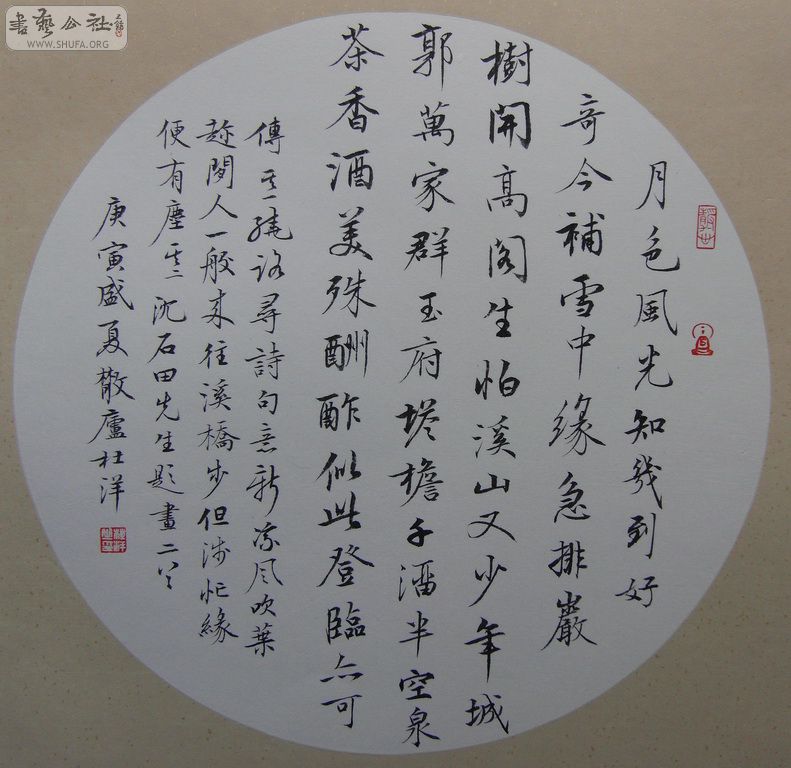 書藝公社
WWW.SHUFA.ORG
月色風光知幾到好
奇今補雪中緣急排巖
樹開高閣生怕溪山又少年城
郭萬家群玉府塔檐千溜半空泉
茶香酒美殊酬酢似此登臨亦可
傳其一繞路尋詩句意新凉风吹葉
趂閒人一般来往溪橋步但涉忙緣
便有塵其二沈石田先生題畫二首
庚寅盛夏散廬杜洋